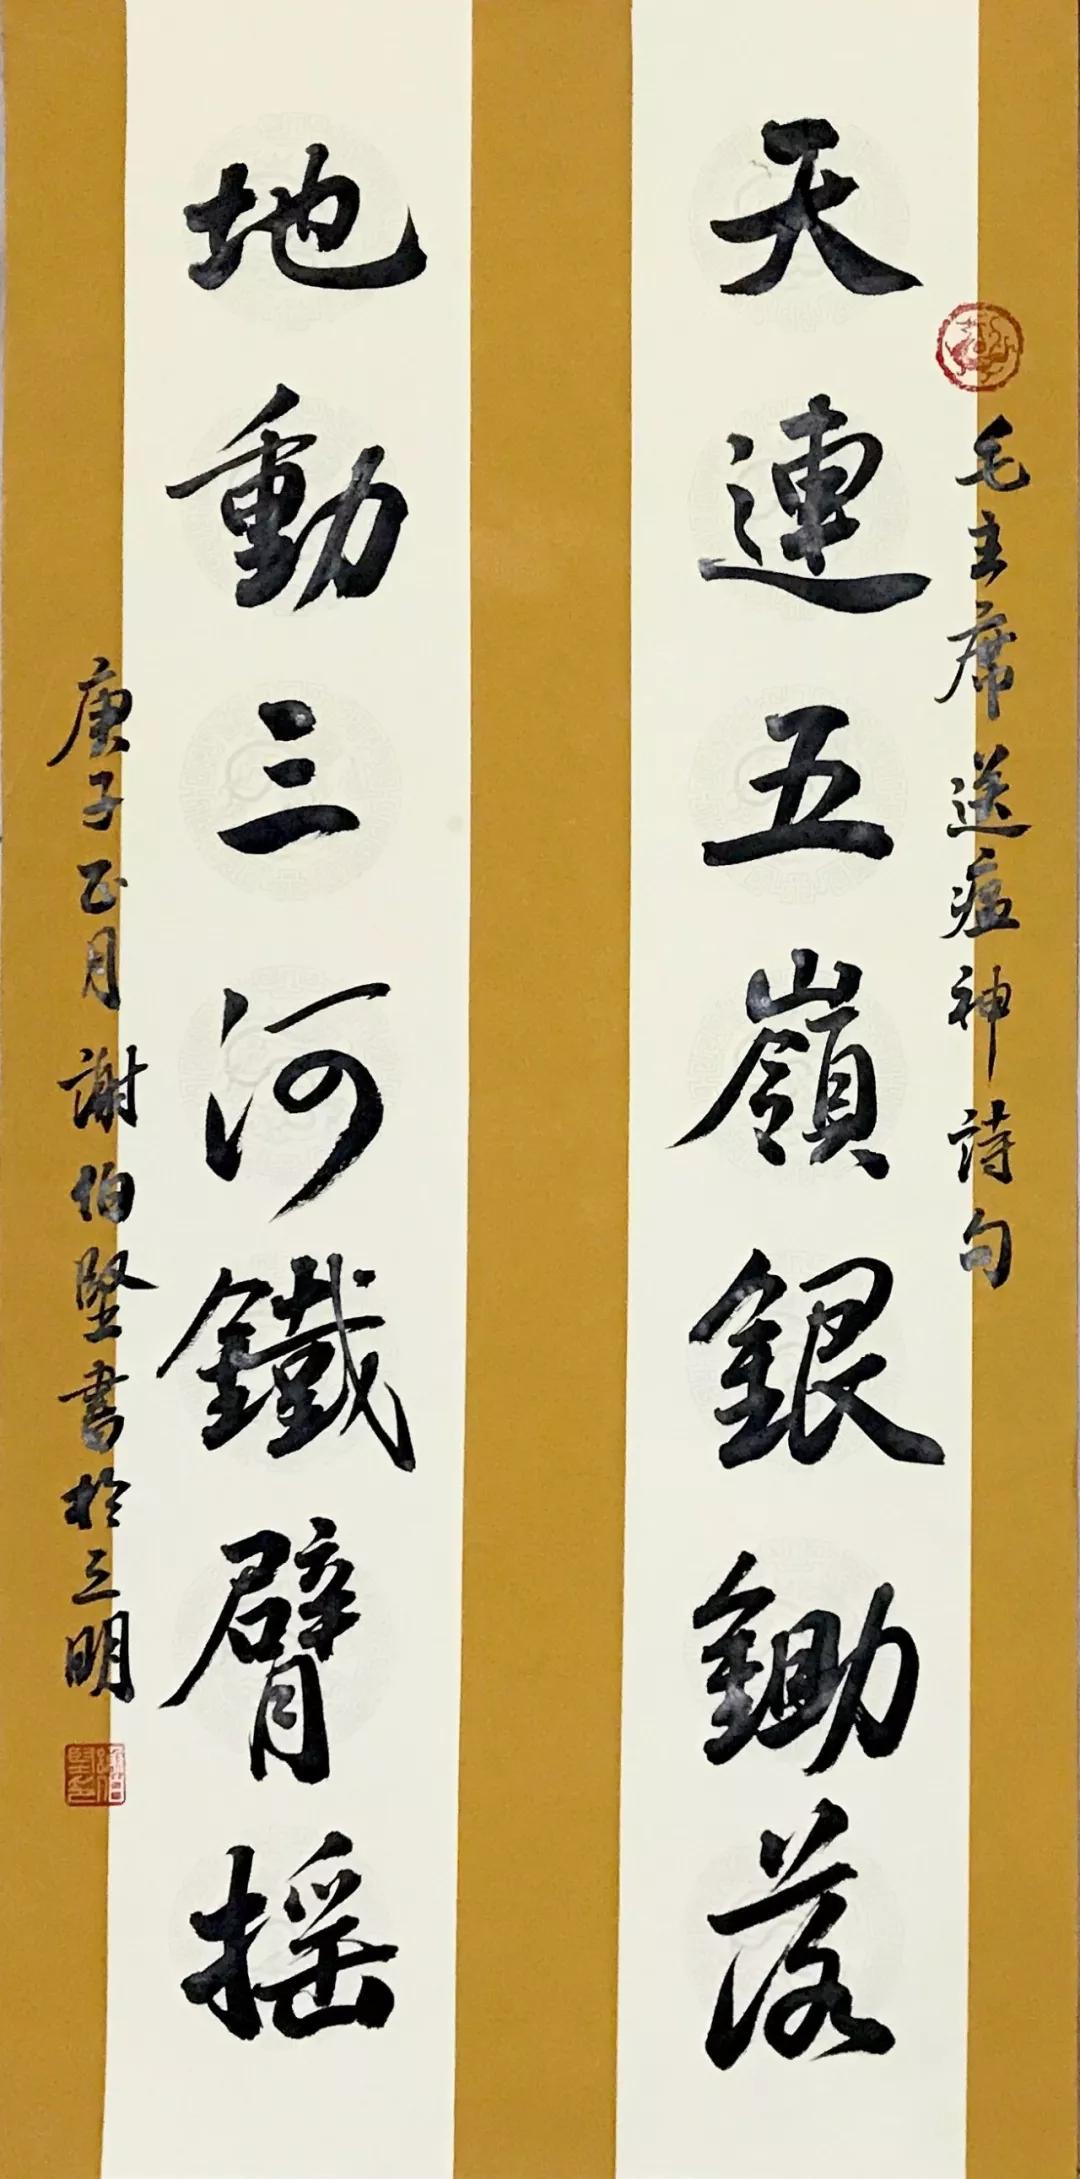 毛主席送瘟神詩句
天連五嶺銀鋤落
地動三河鐵臂摇
庚子正月謝伯堅書於三明